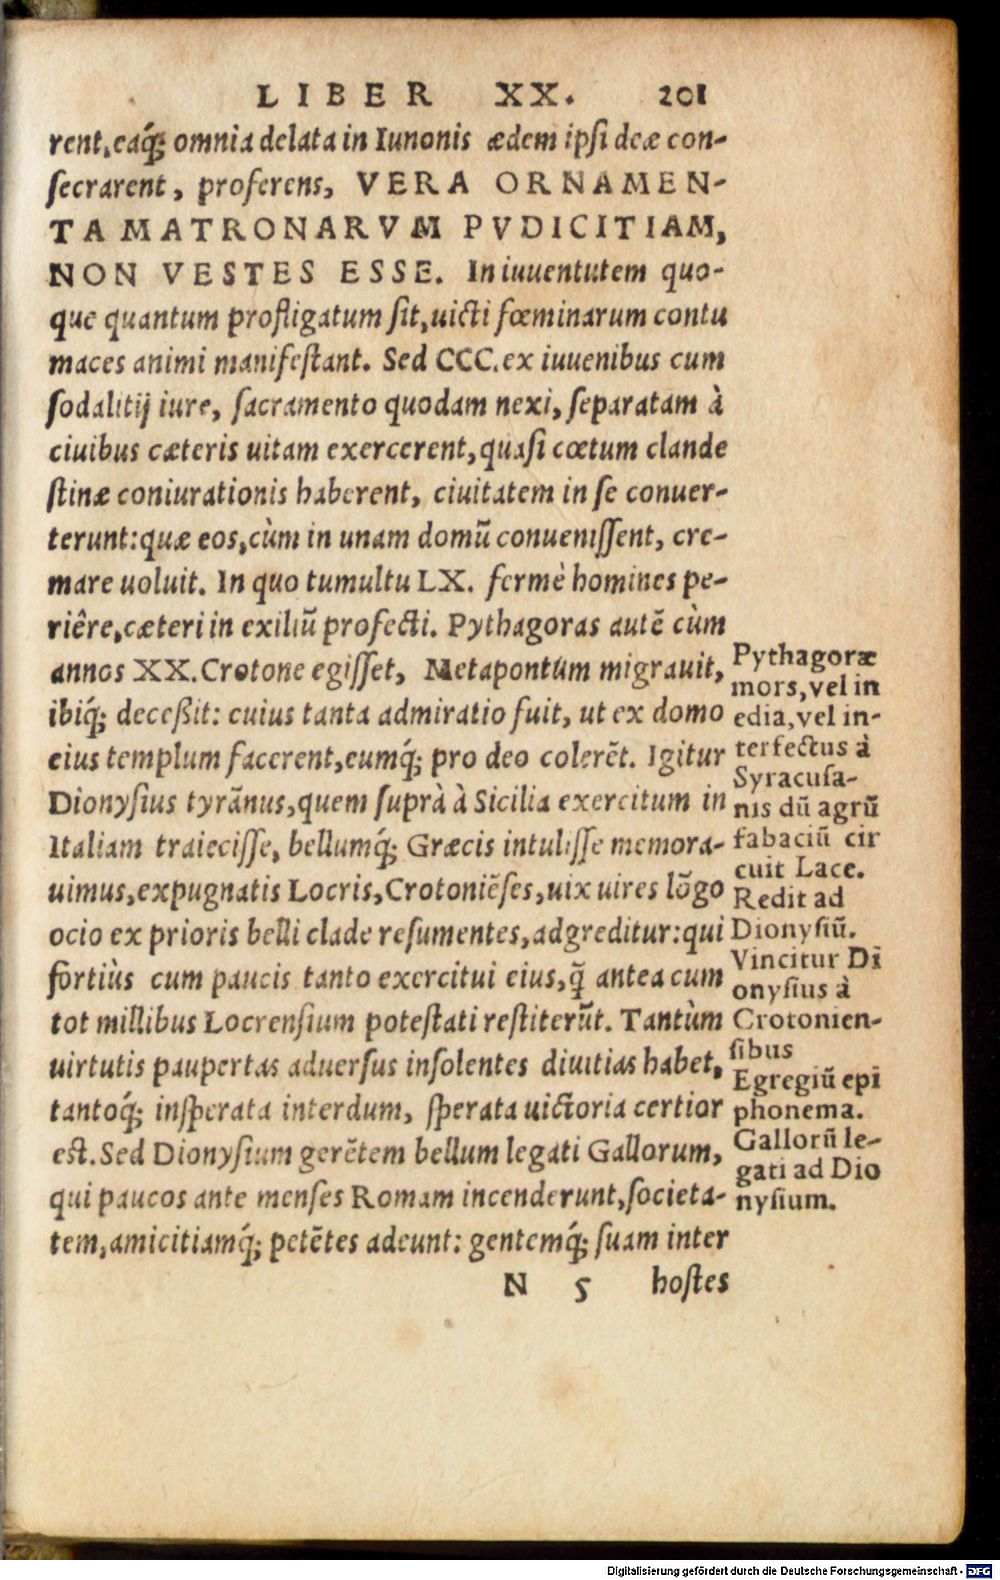 LIBER XX. 201
rent, eaq́; omnia delata in Iunonis ædem ipsi deæ con-
secrarent, proferens, VERA ORNAMEN-
TA MATRONARVM PVDICITIAM,
NON VESTES ESSE. In iuuentutem quo-
que quantum profligatum sit, uicti fœminarum contu
maces animi manifestant. Sed CCC. ex iuuenibus cum
sodalitij iure, sacramento quodam nexi, separatam à
ciuibus cæteris uitam exercerent, quasi cœtum clande
stinæ coniurationis haberent, ciuitatem in se conuer-
terunt: quæ eos, cùm in unam domũ conuenissent, cre-
mare uoluit. In quo tumultu LX. fermè homines pe-
riêre, cæteri in exiliũ profecti. Pythagoras autẽ cùm
annos XX. Crotone egisset, Metapontum migrauit,
ibiq́; deceßit: cuius tanta admiratio fuit, ut ex domo
eius templum facerent, eumq́; pro deo colerẽt. Igitur
Dionysius tyrãnus, quem suprà à Sicilia exercitum in
Italiam traiecisse, bellumq́; Græcis intulisse memora-
uimus, expugnatis Locris, Crotoniẽses, uix uires lõgo
ocio ex prioris belli clade resumentes, adgreditur: qui
fortiùs cum paucis tanto exercitui eius, q̃ antea cum
tot millibus Locrensium potestati restiterũt. Tantùm
uirtutis paupertas aduersus insolentes diuitias habet,
tantoq́; insperata interdum, sperata uictoria certior
est. Sed Dionysium gerẽtem bellum legati Gallorum,
qui paucos ante menses Romam incenderunt, societa-
tem, amicitiamq́; petẽtes adeunt: gentemq́; suam inter
N 5 hostes
Pythagoræ
mors, vel in
edia, vel in-
terfectus à
Syracusa-
nis dũ agrũ
fabaciũ cir
cuit Lace.
Redit ad
Dionysiũ.
Vincitur Di
onysius à
Crotonien-
sibus
Egregiũ epi
phonema.
Gallorũ le-
gati ad Dio
nysium.
Digitalisierung gefördert durch die Deutsche Forschungsgemeinschaft - DFG